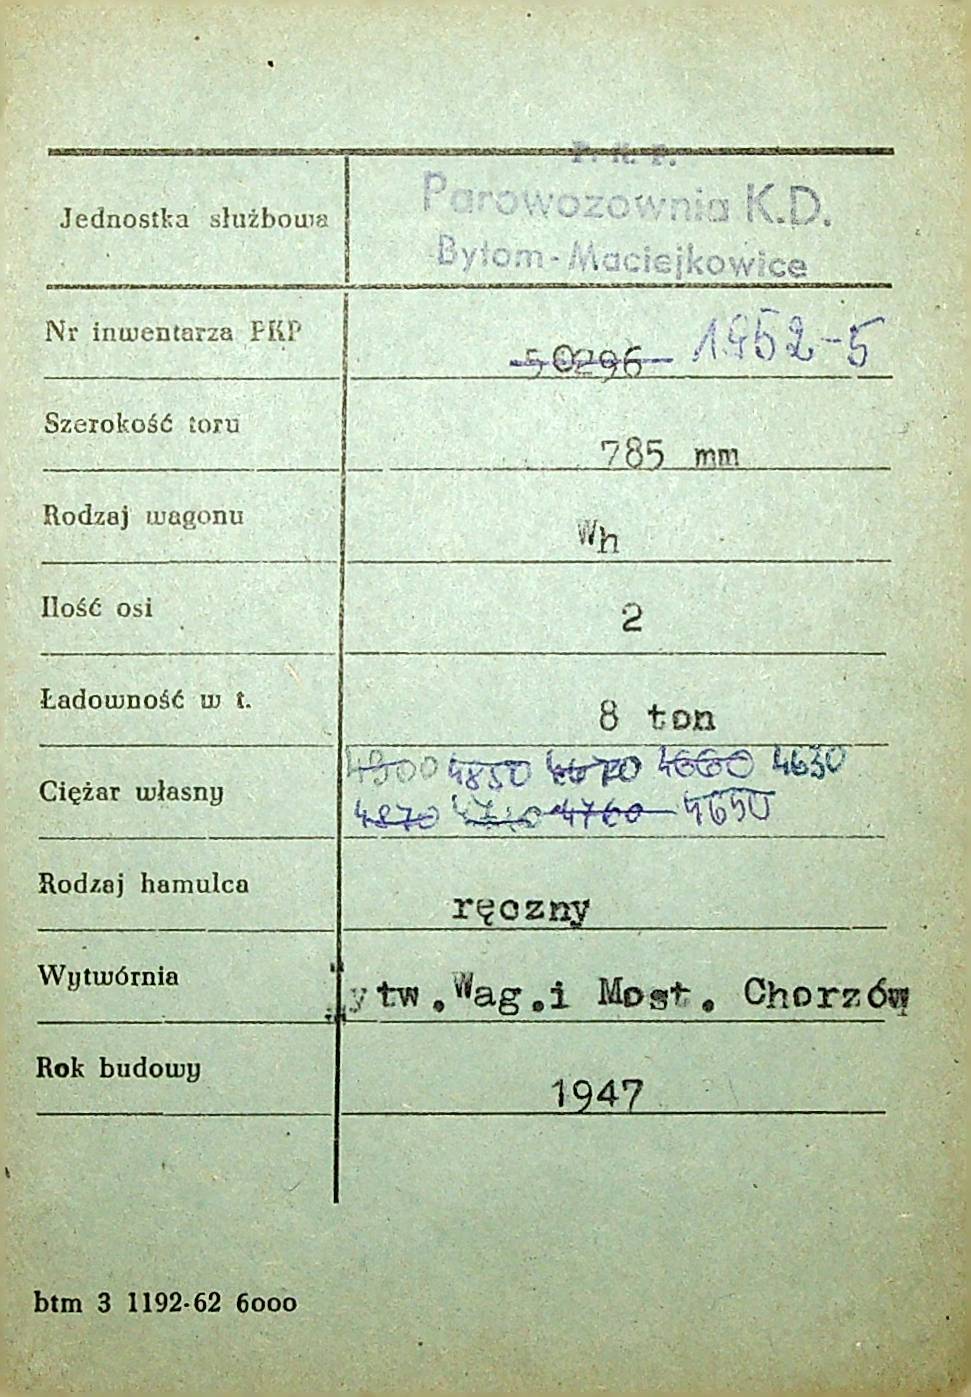 P. K. P.
Jednostka służbowa Parowozownia K.D.
Bytom-Maciejkowice
Nr inwentarza PKP 50296 1952-5
Szerokość toru 785 mm
Rodzaj wagonu Wh
Ilość osi 2
Ładowność w t. 8 ton
4900 4850 4670 4660 4630
Ciężar własny
4870 4760 4650
Rodzaj hamulca ręczny
Wytwórnia ytw.Wag.i Most. Chorzów
Rok budowy 1947
btm 3 1192-62 6000